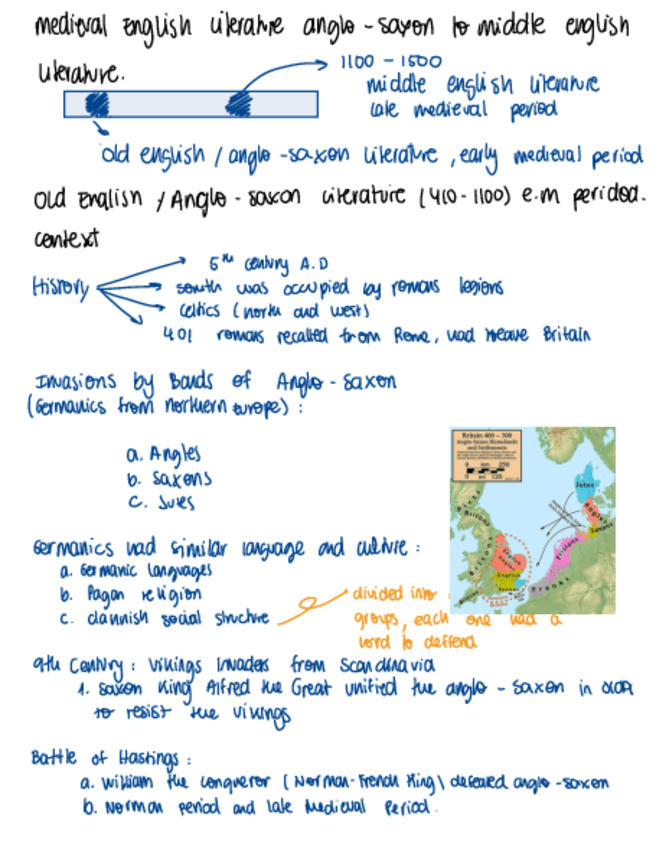 medieval english literature anglo-saxon to middle english
literature.
1100 - 1500
middle english literature
late medieval period
old english / anglo-saxon literature, early medieval period
Old English / Anglo-saxon literature (410-1100) e.m period.
context
History
5th century A.D
south was occupied by romans legions
celtics (north and west)
401 romans recalled from Rome, had leave Britain
Invasions by Bands of Anglo-Saxon
(Germanics from northern europe) :
a. Angles
b. Saxons
c. Jutes
Britain 400 - 500
Anglo-Saxon Homelands
and Settlements
0 km 250
0 mi 125
Jutes
Angles
Saxons
Frisians
Franks
Britons
English
Germanics had similar language and culture :
a. Germanic languages
b. Pagan religion
c. clannish social structure
divided into
groups, each one had a
lord to deffend
9th Century : Vikings Invaders from Scandinavia
1. Saxon King Alfred the Great unified the anglo-saxon in order
to resist the vikings
Battle of Hastings :
a. William the conqueror (Norman-French King) defeated anglo-saxon
b. Norman period and late Medieval Period.